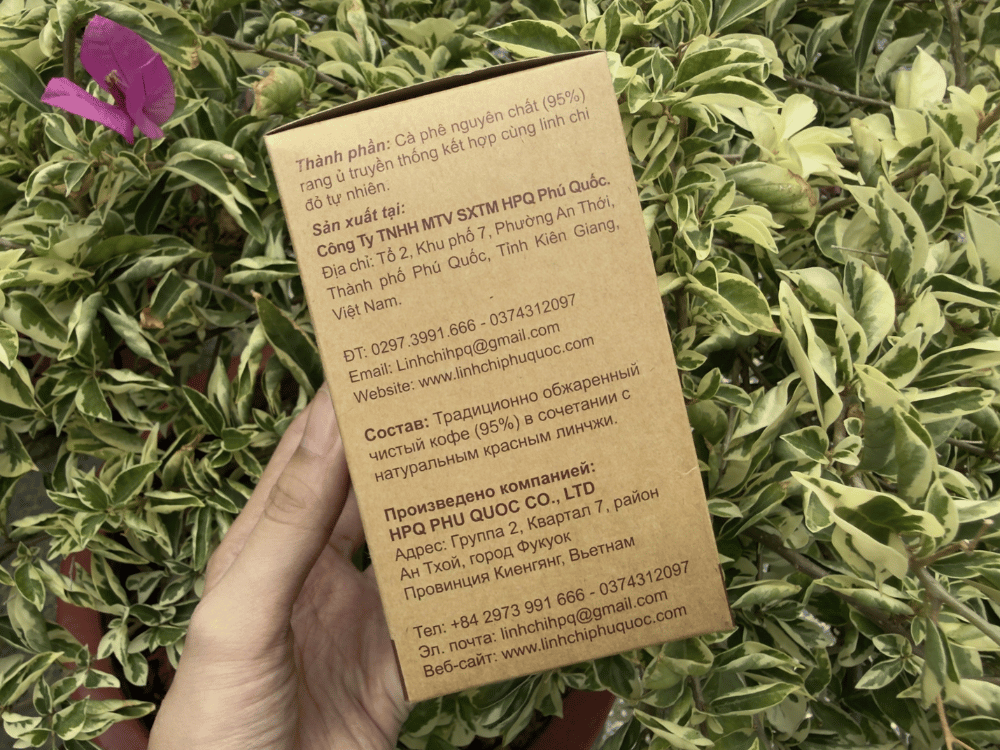 Thành phần: Cà phê nguyên chất (95%)
rang ủ truyền thống kết hợp cùng linh chi
đỏ tự nhiên.
Sản xuất tại:
Công Ty TNHH MTV SXTM HPQ Phú Quốc.
Địa chỉ: Tổ 2, Khu phố 7, Phường An Thới,
Thành phố Phú Quốc, Tỉnh Kiên Giang,
Việt Nam.
ĐT: 0297.3991.666 - 0374312097
Email: Linhchihpq@gmail.com
Website: www.linhchiphuquoc.com
Состав: Традиционно обжаренный
чистый кофе (95%) в сочетании с
натуральным красным линчжи.
Произведено компанией:
HPQ PHU QUOC CO., LTD
Адрес: Группа 2, Квартал 7, район
Ан Тхой, город Фукуок
Провинция Киенгянг, Вьетнам
Тел: +84 2973 991 666 - 0374312097
Эл. почта: linhchihpq@gmail.com
Веб-сайт: www.linhchiphuquoc.com